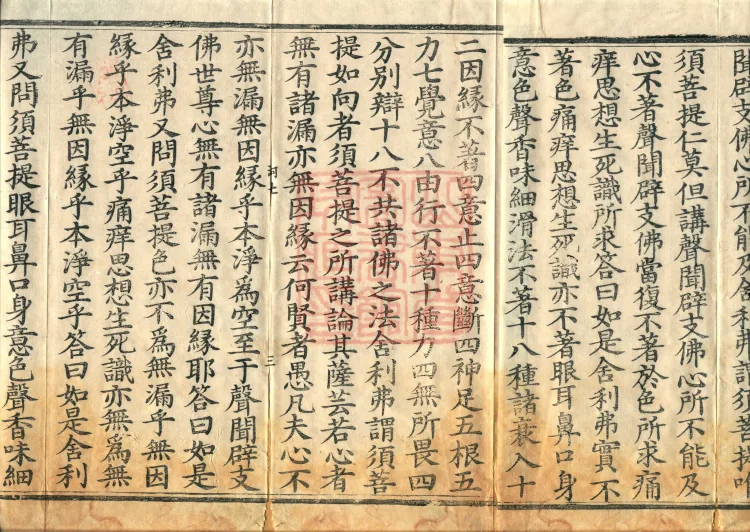 聞辟支佛心所不能及舍利弗謂須菩提唯
須菩提仁莫但講聲聞辟支佛心所不能及
心不著聲聞辟支佛當復不著於色所求痛
痒思想生死識所求答曰如是舍利弗實不
著色痛痒思想生死識亦不著眼耳鼻口身
意色聲香味細滑法不著十八種諸衰入十
二因緣不著四意止四意斷四神足五根五
力七覺意八由行不著十種力四無所畏四
分別辯十八不共諸佛之法舍利弗謂須菩
提如向者須菩提之所講論其薩芸若心者
無有諸漏亦無因緣云何賢者愚凡夫心不
亦無漏無因緣乎本淨為空至于聲聞辟支
珂七
三
佛世尊心無有諸漏無有因緣耶答曰如是
舍利弗又問須菩提色亦不為無漏乎無因
緣乎本淨空乎痛痒思想生死識亦無為無
有漏乎無因緣乎本淨空乎答曰如是舍利
弗又問須菩提眼耳鼻口身意色聲香味細